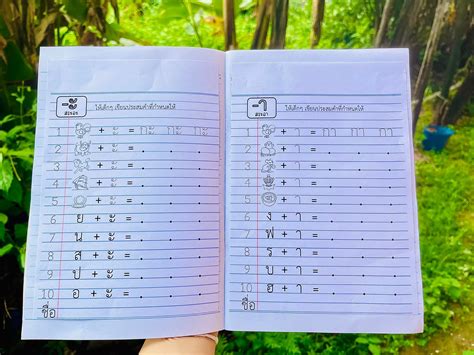 -ะ
สระอะ
ให้เด็กๆ เขียนประสมคำที่กำหนดให้
1 + ะ = กะ กะ กะ
2 + ะ = . . .
3 + ะ = . . .
4 + ะ = . . .
5 + ะ = . . .
6 ย + ะ = . . .
7 น + ะ = . . .
8 ส + ะ = . . .
9 ป + ะ = . . .
10 อ + ะ = . . .
ชื่อ
-า
สระอา
ให้เด็กๆ เขียนประสมคำที่กำหนดให้
1 + า = กา กา กา
2 + า = . . .
3 + า = . . .
4 + า = . . .
5 + า = . . .
6 ง + า = . . .
7 ฟ + า = . . .
8 ร + า = . . .
9 บ + า = . . .
10 ฮ + า = . . .
ชื่อ